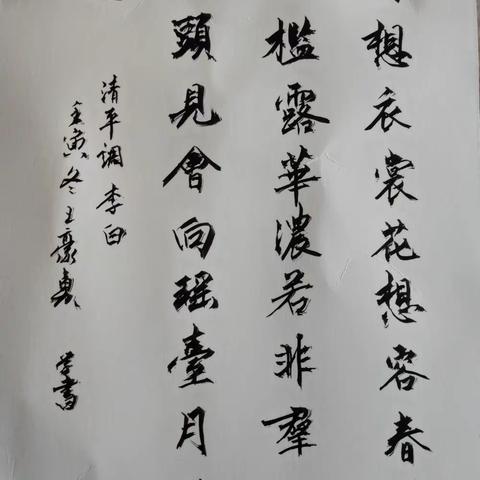 想衣裳花想容春
檻露華濃若非羣
頭見會向瑶臺月
清平调 李白
壬寅冬王豪 学書